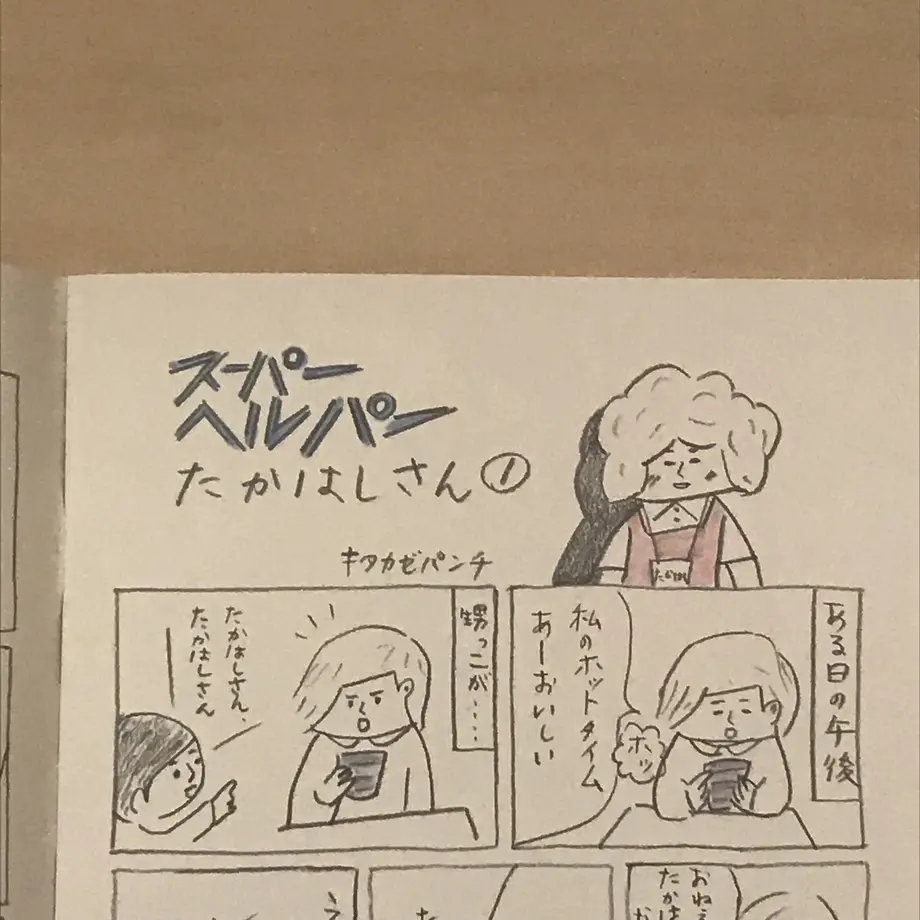 スーパー
ヘルパー
たかはしさん①
キタカゼパンチ
たかはし
ある日の午後
私のホットタイム
あーおいしい
ホッ
甥っこが….
たかはしさん、
たかはしさん
おねえ
たかは